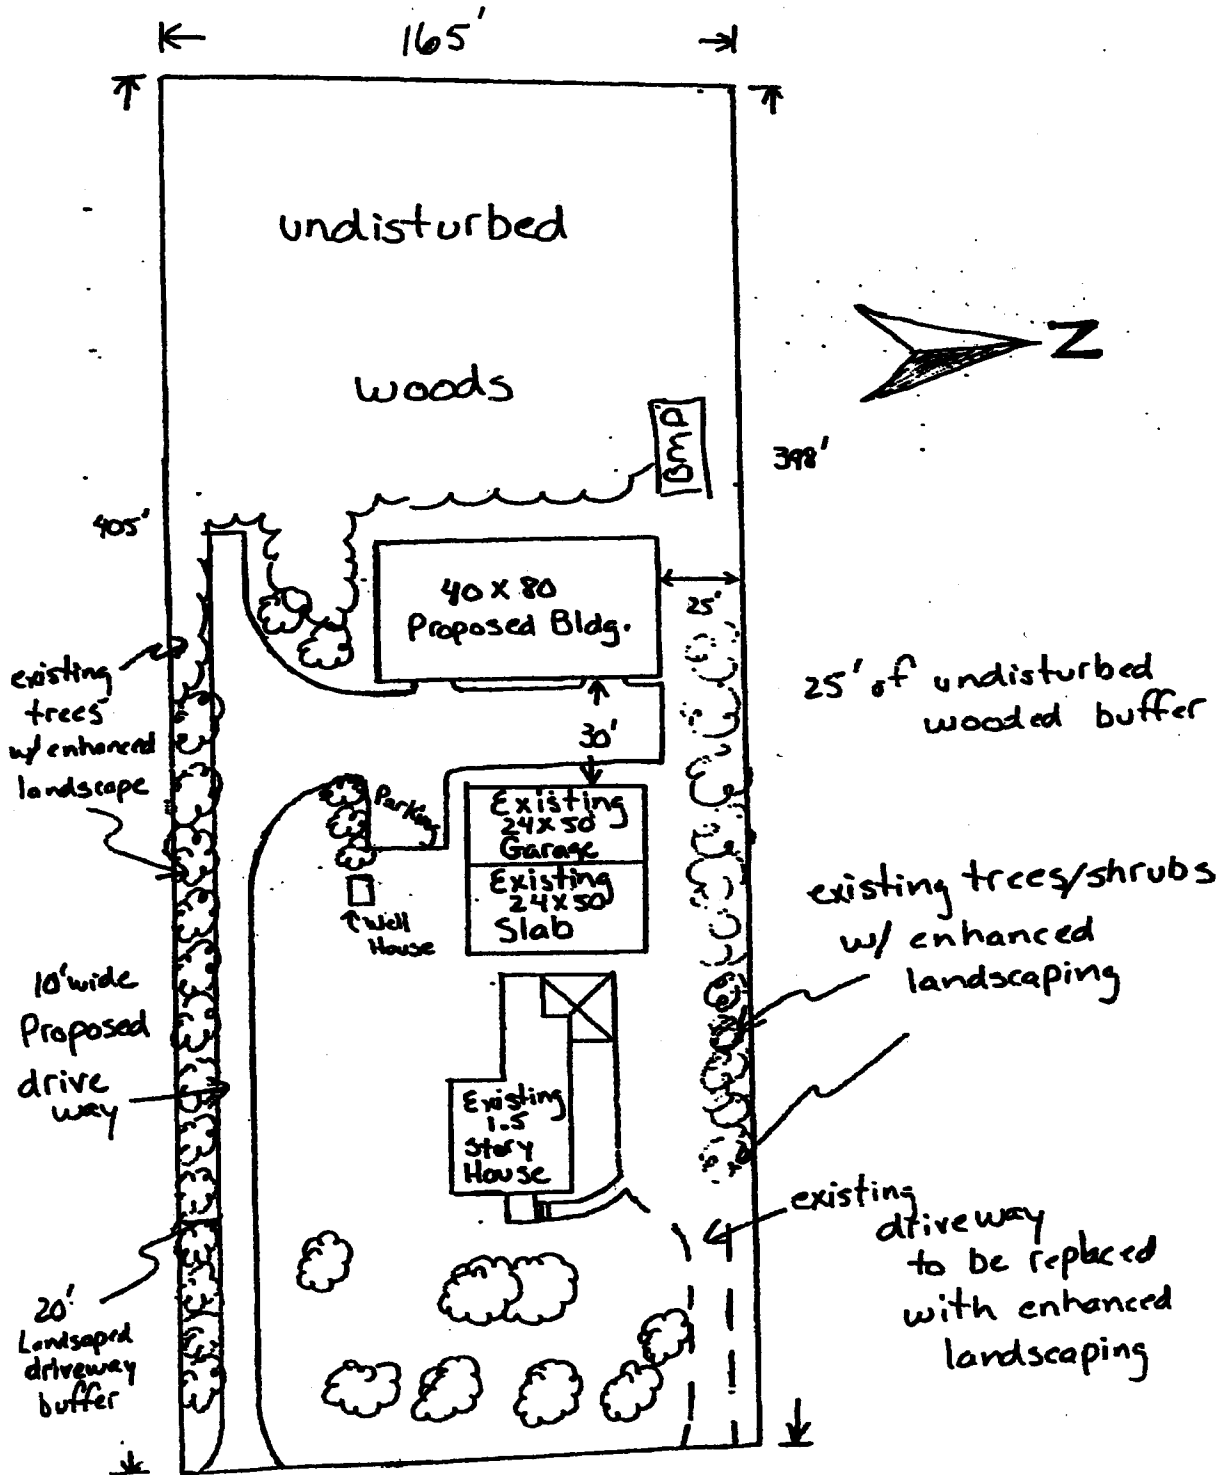 165'
undisturbed
woods
N
BMP
398'
405'
40 x 80
Proposed Bldg.
25'
25' of undisturbed
wooded buffer
existing
trees
w/ enhanced
landscape
30'
Parking
Existing
24 x 50
Garage
Existing
24 x 50
Slab
Well
House
existing trees/shrubs
w/ enhanced
landscaping
10' wide
Proposed
drive
way
Existing
1.5
Story
House
existing
driveway
to be replaced
with enhanced
landscaping
20'
Landsaped
driveway
buffer